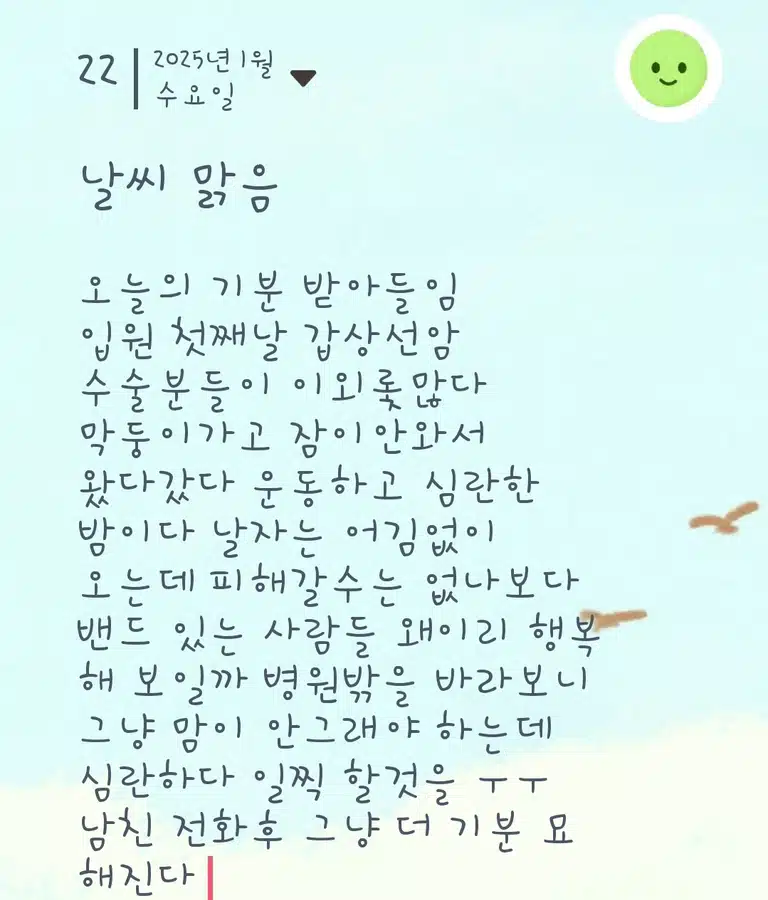 22
2025년 1월
수요일
날씨 맑음
오늘의 기분 받아들임
입원 첫째날 갑상선암
수술분들이 이외롲많다
막둥이가고 잠이안와서
왔다갔다 운동하고 심란한
밤이다 날자는 어김없이
오는데 피해갈수는 없나보다
밴드 있는 사람들 왜이리 행복
해 보일까 병원밖을 바라보니
그냥 맘이 안그래야 하는데
심란하다 일찍 할것을 ㅜㅜ
남친 전화후 그냥 더 기분 묘
해진다